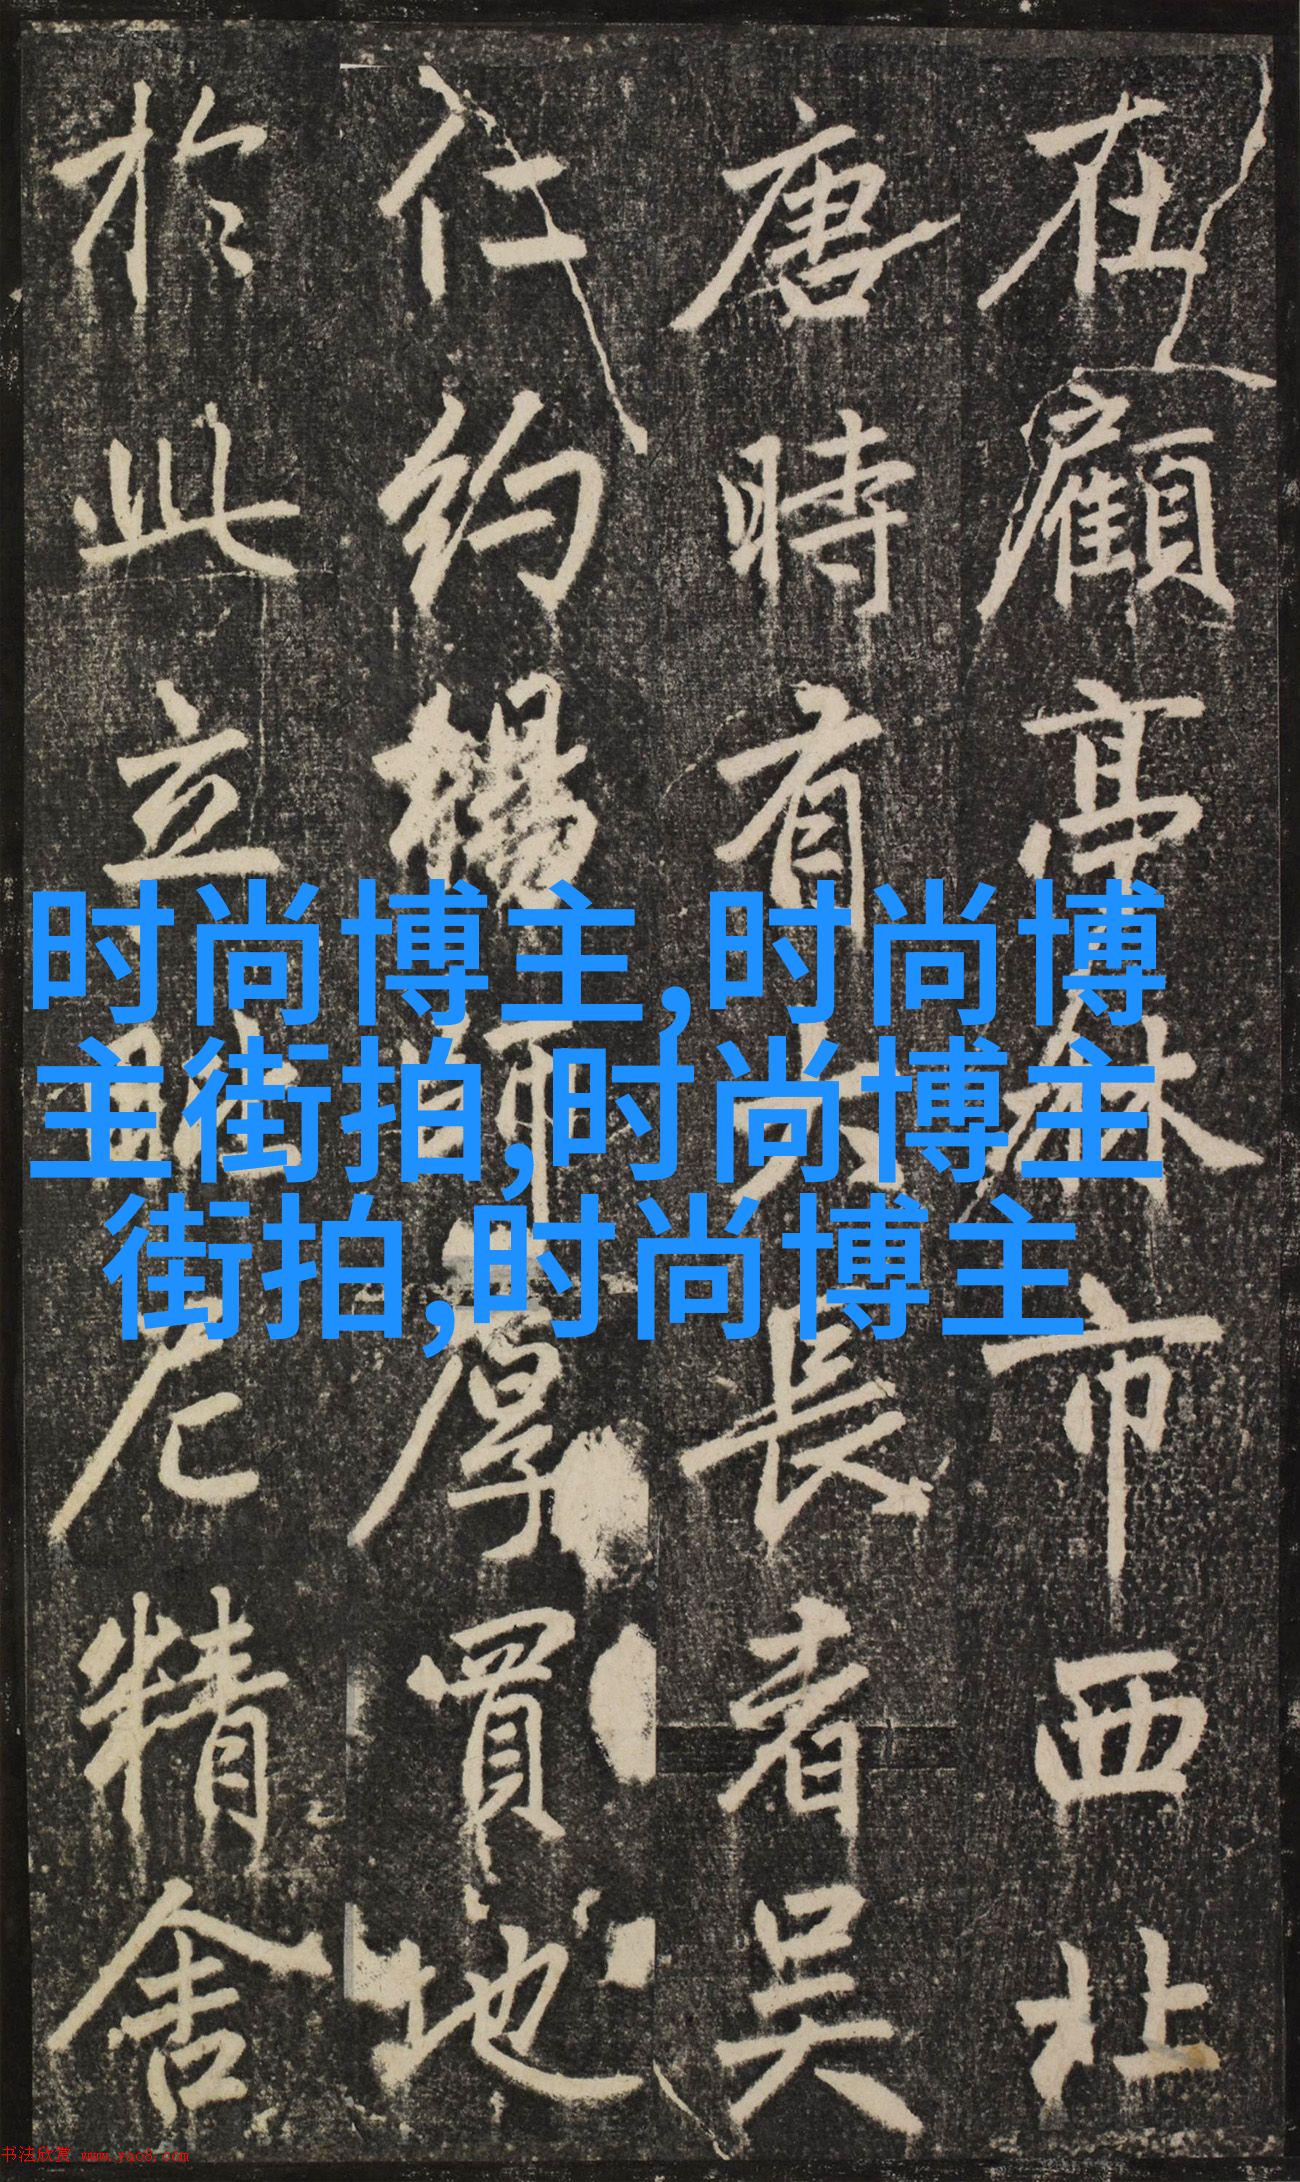 在顧亭林市西北
唐時有大長者吳
仁約楊師厚買地
於此立尼精舍
时尚博主,时尚博
主街拍,时尚博主
街拍,时尚博主
书法欣赏 www.yac8.com